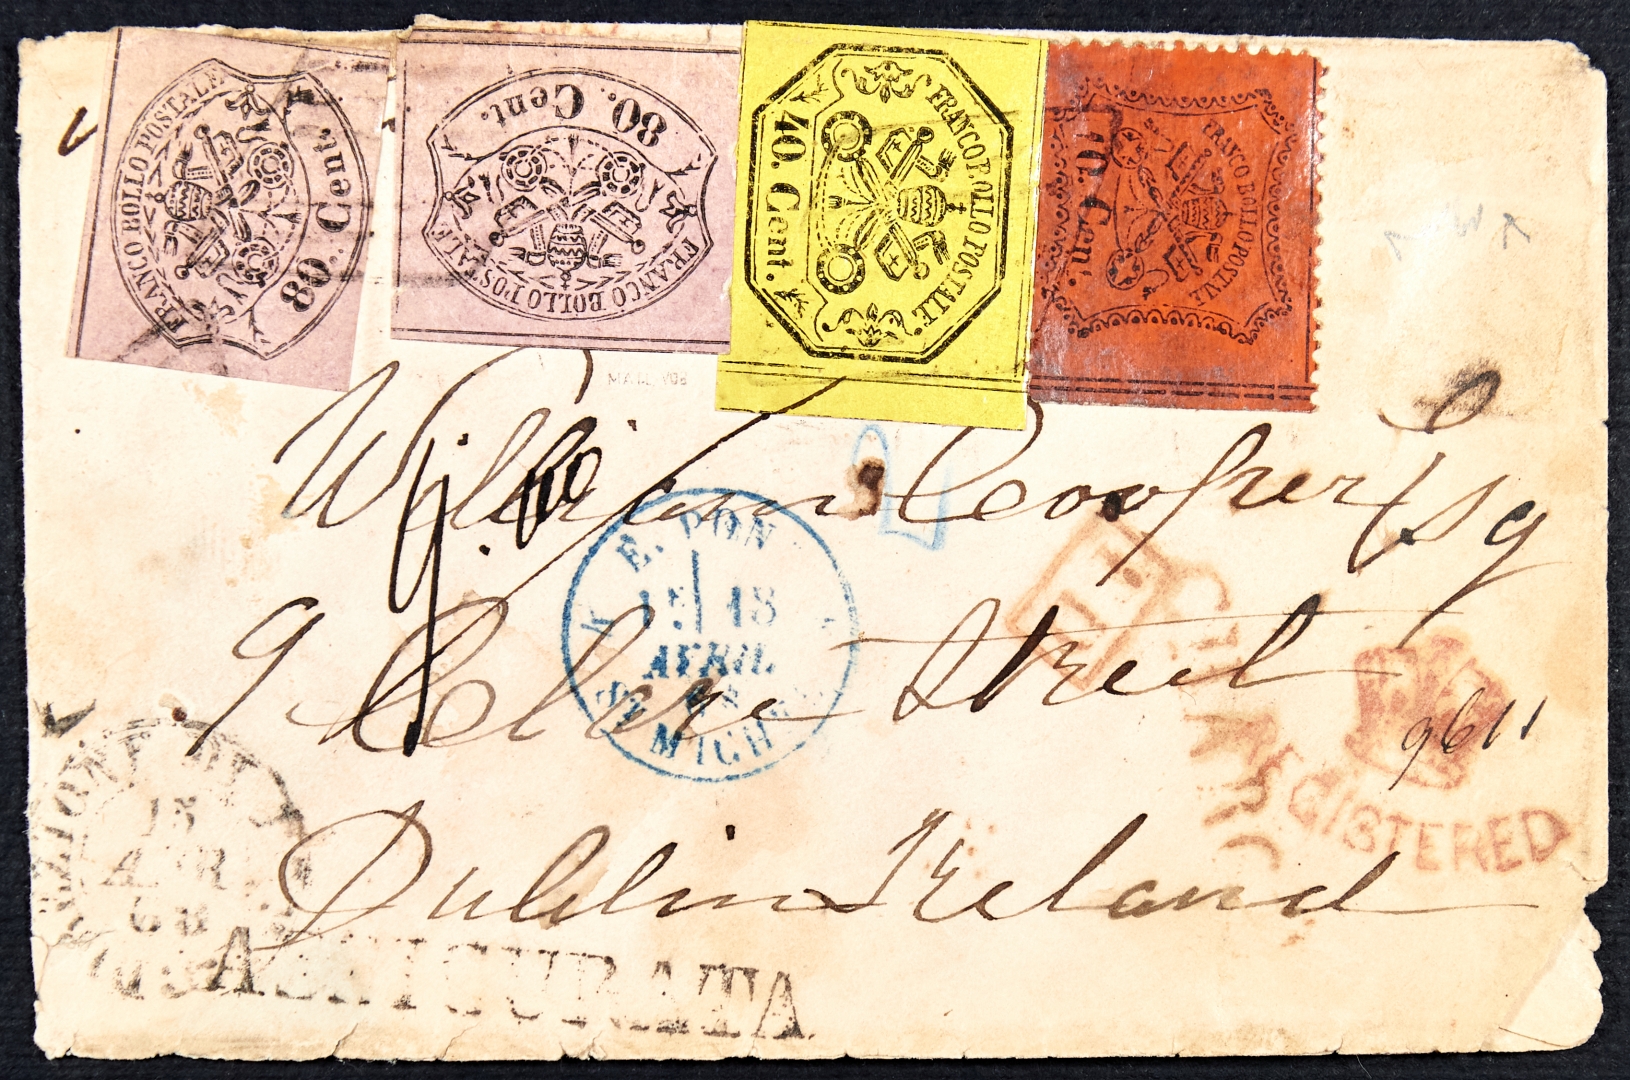 FRANCO BOLLO POSTALE
80. Cent.
FRANCO BOLLO POSTALE
80. Cent.
FRANCO BOLLO POSTALE
40. Cent.
FRANCO BOLLO POSTALE
10. Cent.
William Cooper Esq
9 Clare Street
Dublin Ireland
E. PON
15 18
AVRIL
68
ST MICHEL
P.D.
REGISTERED
9611
15
APR
68
ASSICURATA